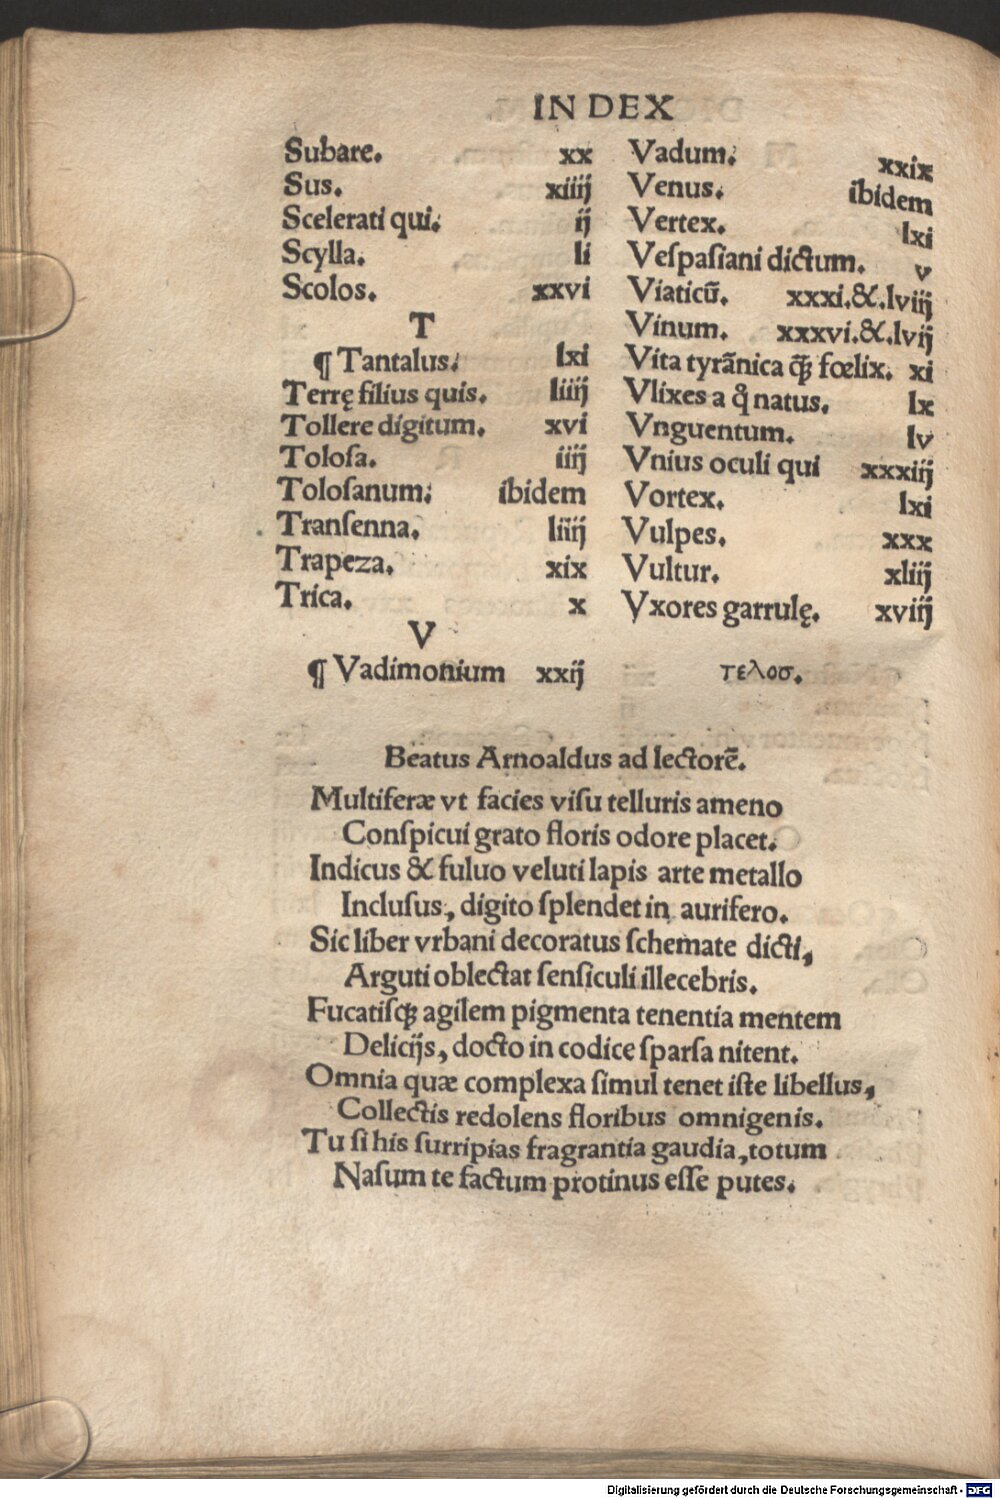 INDEX
Subare. xx
Sus. xiiij
Scelerati qui. ij
Scylla. li
Scolos. xxvi
T
¶ Tantalus. lxi
Terrę filius quis. liiij
Tollere digitum. xvi
Tolosa. iiij
Tolosanum. ibidem
Transenna. liiij
Trapeza. xix
Trica. x
V
¶ Vadimonium xxij
Vadum. xxix
Venus. ibidem
Vertex. lxi
Veſpaſiani dictum. v
Viaticũ. xxxi.&.lviij
Vinum. xxxvi.&.lvij
Vita tyrãnica ꝗ̃ꝫ fœlix. xi
Vlixes a q̊ natus. lx
Vnguentum. lv
Vnius oculi qui xxxiij
Vortex. lxi
Vulpes. xxx
Vultur. xliij
Vxores garrulę. xviij
τελοσ.
Beatus Arnoaldus ad lectorẽ.
Multiferæ vt facies viſu telluris ameno
Conſpicui grato floris odore placet.
Indicus & fuluo veluti lapis arte metallo
Incluſus, digito ſplendet in aurifero.
Sic liber vrbani decoratus ſchemate dicti,
Arguti oblectat ſenſiculi illecebris.
Fucatiſqꝫ agilem pigmenta tenentia mentem
Delicijs, docto in codice ſparſa nitent.
Omnia quæ complexa ſimul tenet iſte libellus,
Collectis redolens floribus omnigenis.
Tu ſi his ſurripias fragrantia gaudia, totum
Naſum te factum protinus eſſe putes.
Digitalisierung gefördert durch die Deutsche Forschungsgemeinschaft - DFG